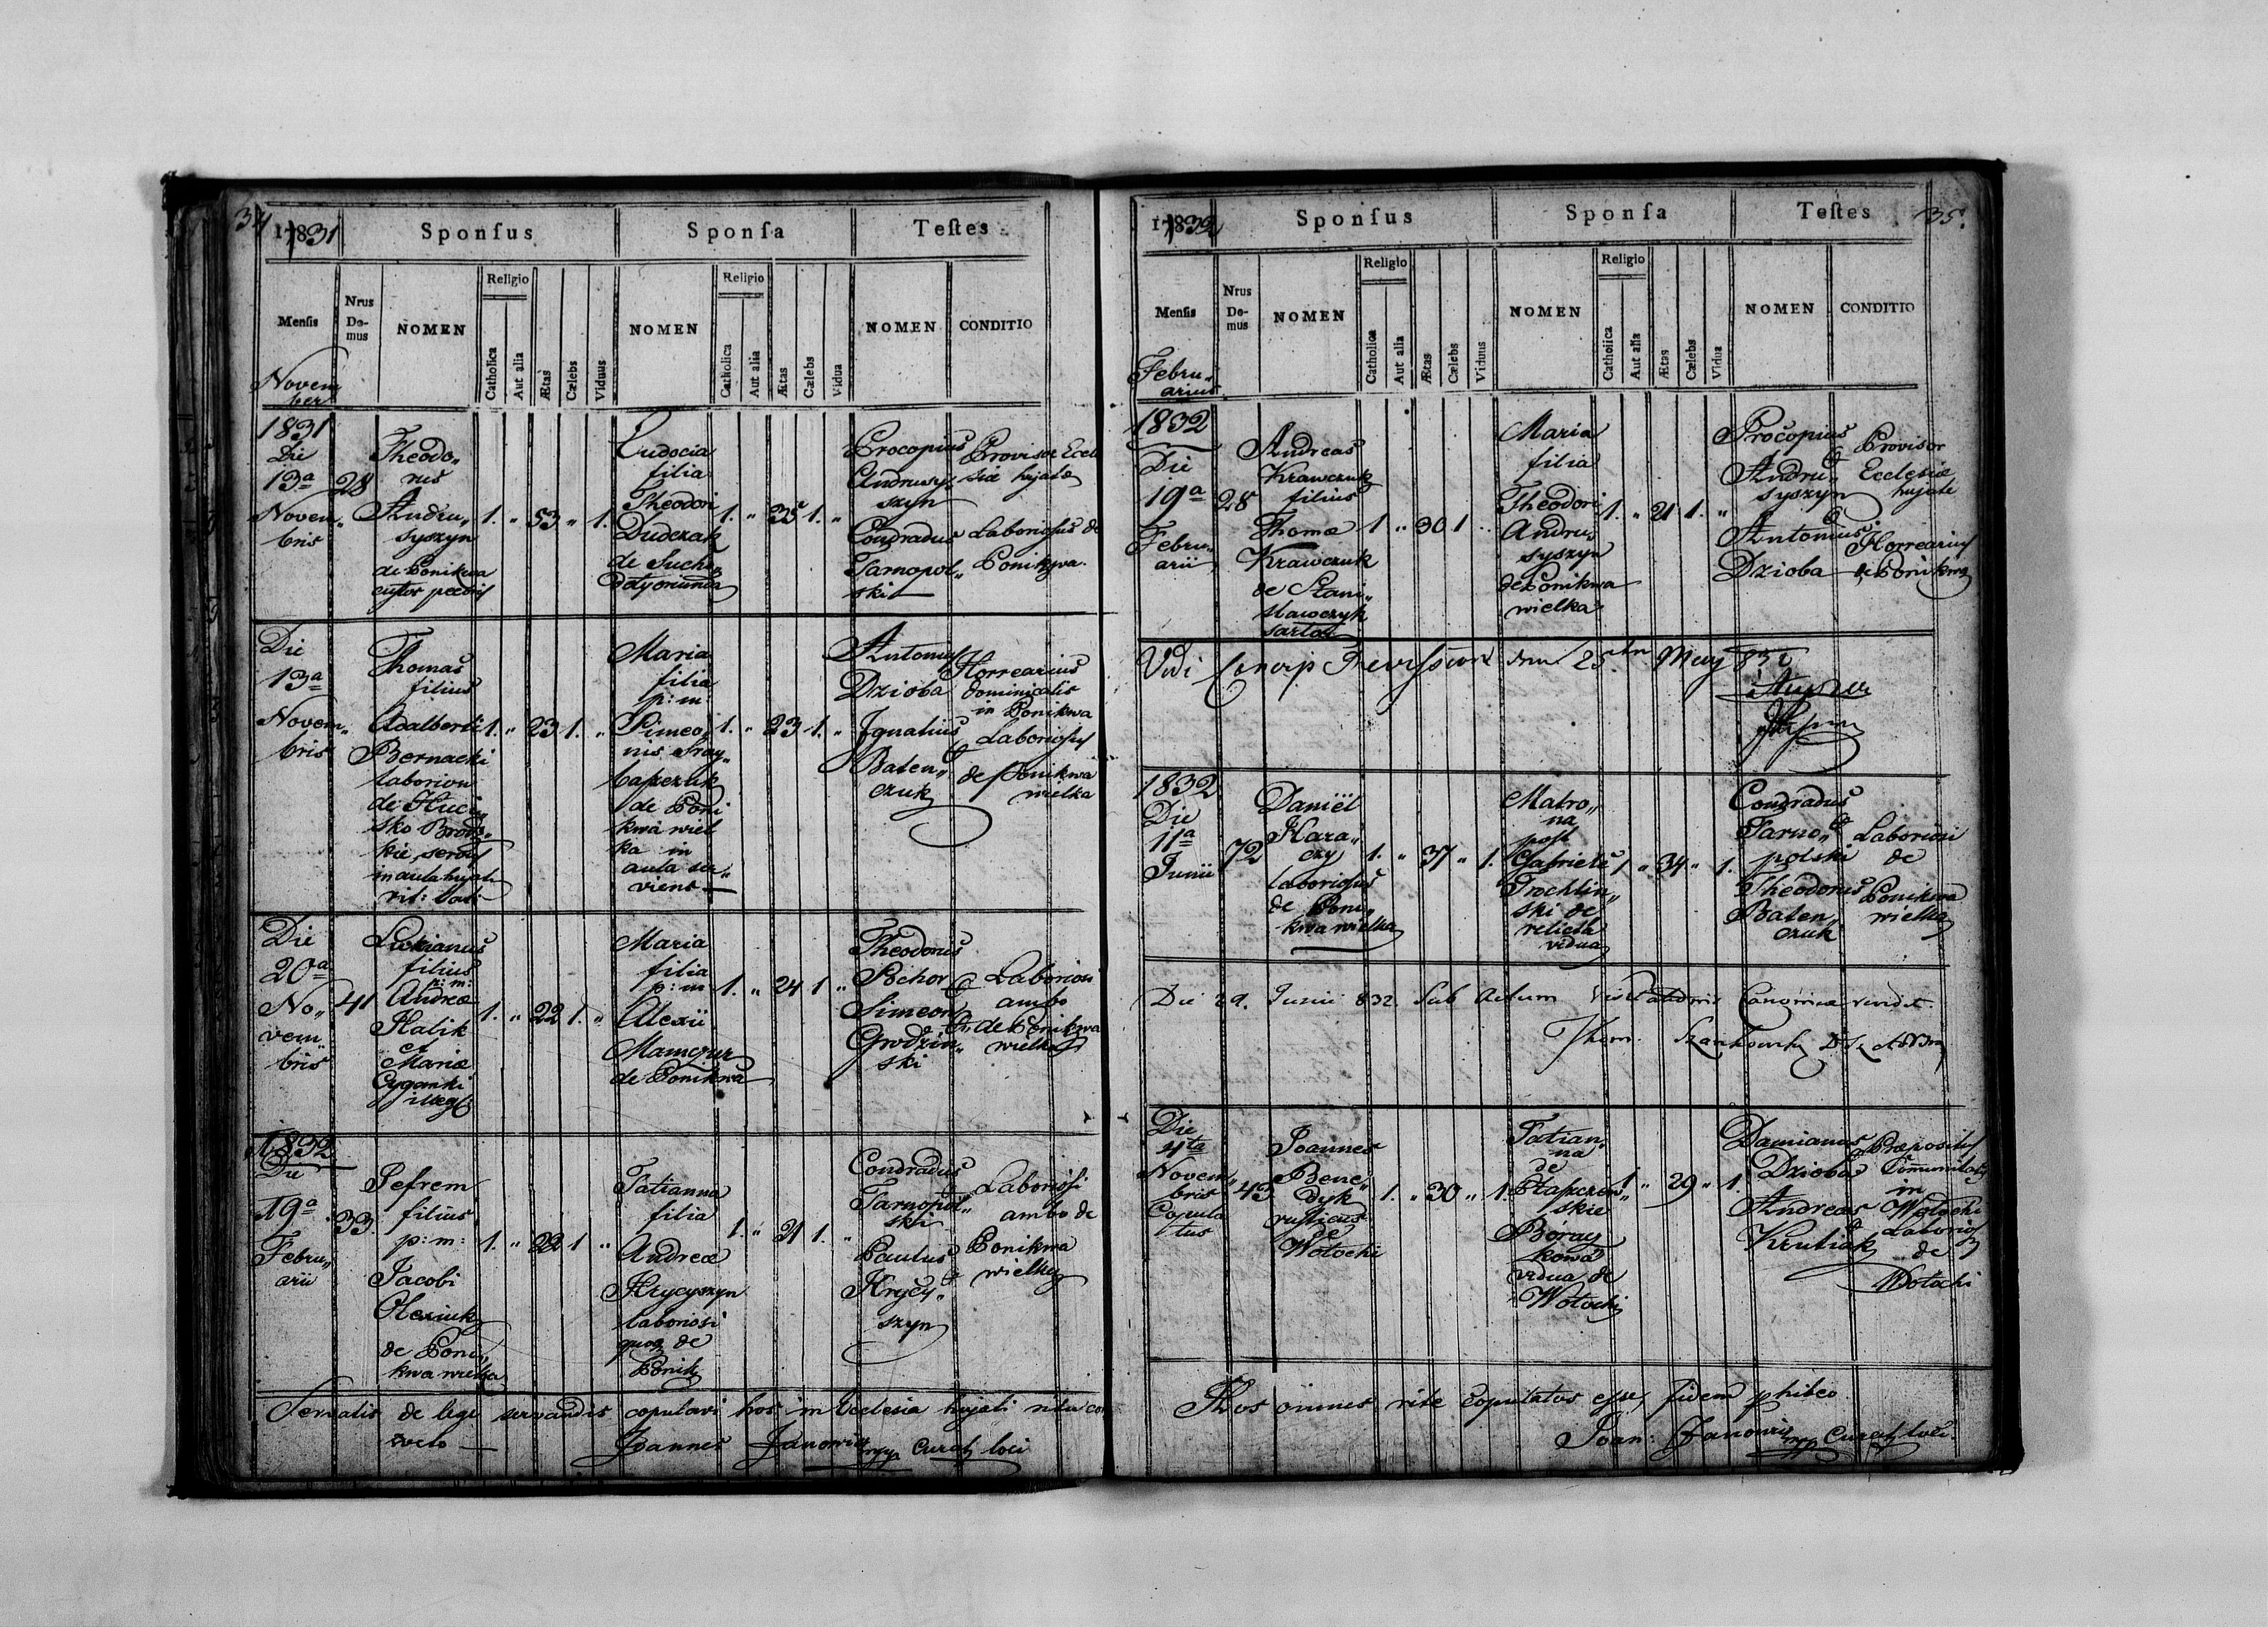 34
17831
Sponsus
Sponsa
Testes
Mensis
Nrus Do-mus
NOMEN
Religio
Catholica
Aut alia
Ætas
Cælebs
Viduus
NOMEN
Religio
Catholica
Aut alia
Ætas
Cælebs
Vidua
NOMEN
CONDITIO
Novem
ber
1831
Die
13a
Novem„
bris
28
Theodo„
rus
Andru„
syszyn
de Ponikwa
1. „ 53 „ 1.
Eudocia
filia
Theodori
Dudczak
de Sucho„
doly oriunda
1. „ 35 1. „
Procopius
Andrusy„
szyn
Condradus
Tarnopol„
ski
Provisor Eccl
siæ hujatæ
Laboriosus de
Ponikwa.
Die
13a
Novem„
bris
Thomas
filius
Adalberti
Bernacki
laboriosi
de Huci„
sko Brodz„
kie, serviens
in aula hujati
rit: lati
1. „ 23 1. „
Maria
filia
p: m:
Simeo„
nis
de Poni
kwa wiel
ka in
aula ser„
viens
1. „ 23 1. „
Antonius
Dzioba
Ignatius
Baten„
czuk
Horrearius
dominicalis
in Ponikwa
Laboriosus
de Ponikwa
wielka
Die
20a
No„
vem„
bris
41
Lucianus
filius
p: m:
Andreæ
Halik
et
Mariæ
Cyganki
1. „ 22 1. „
Maria
filia
p: m
Alexii
Mamczur
de Ponikwa
1. „ 24 1. „
Theodorus
Bohor
Simeon
Grodzin„
ski
Laboriosi
ambo
de Ponikwa
wielka
1832
Die
19a
Febru„
arii
33
Jefrem
filius
p: m:
Jacobi
Olexiuk
de Poni„
kwa wielka
1. „ 22 1 „
Tatianna
filia
Andreæ
Hrycyszyn
laboriosi
quoq de
Ponik
1. „ 21 1. „
Condradus
Tarnopol„
ski
Paulus
Hrycy„
szyn
Laboriosi
ambo de
Ponikwa
wielka
Servatis de lege servandis copulavi hos in Ecclesia hujati
Joannes Janowicz mpp Curat loci
35.
17832
Sponsus
Sponsa
Testes
Mensis
Nrus Do-mus
NOMEN
Religio
Catholica
Aut alia
Ætas
Cælebs
Viduus
NOMEN
Religio
Catholica
Aut alia
Ætas
Cælebs
Vidua
NOMEN
CONDITIO
Febru„
arius
1832
Die
19a
Febru„
arii
28
Andreas
Krawczuk
filius
Thomæ
Krawczuk
de Stani„
slawczyk
sartor
1 „ 30 1 „
Maria
filia
Theodori
Andru„
syszyn
de Ponikwa
wielka
1. „ 21 1. „
Procopius
Andru„
syszyn
et
Antonius
Dzioba
Provisor
Ecclesiæ
hujati
Horrearius
de Ponikwa
Vidi
25 May 832
1832
Die
11a
Junii
72
Daniël
Hara„
czy
laboriosus
de Poni„
kwa wielka
1. „ 37 „ 1.
Matro„
na
post
Gabrielē
Trochlin„
ski de
relicta
vidua
1 „ 34 „ 1.
Condradus
Tarno„
polski
et
Theodorus
Baten„
czuk
Laboriosi
de
Ponikwa
wielka
Die 29. Junii 832. Sub Actum Visitationis Canonicæ
Die
4ta
Novem„
bris
Copula
tus
43
Joannes
Bene„
dyk
rusticus
de
Wołochi
1. „ 30 „ 1.
Tatian„
na
de
Boray
kowa
vidua de
Wołochi
1 „ 29 „ 1.
Damianus
Dzioba
Andreas
Krutiak
Præpositus
Communitatis
in
Wołochi
Laborios
de
Wołochi
Hos omnes rite copulatos esse, fidem phibeo.
Joan: Janowicz mpp Curat loci.